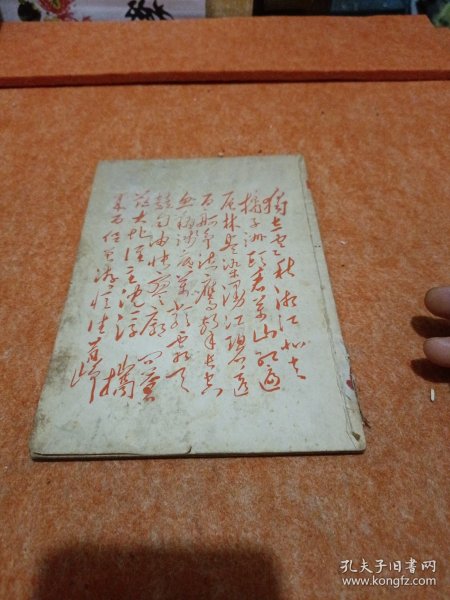 独立寒秋湘江北去
橘子洲头看万山红遍
层林尽染漫江碧透
百舸争流鹰击长空
鱼翔浅底万类霜天
竞自由怅寥廓问苍
茫大地谁主沉浮携
来百侣曾游忆往昔峥
孔夫子旧书网
www.kongfz.com